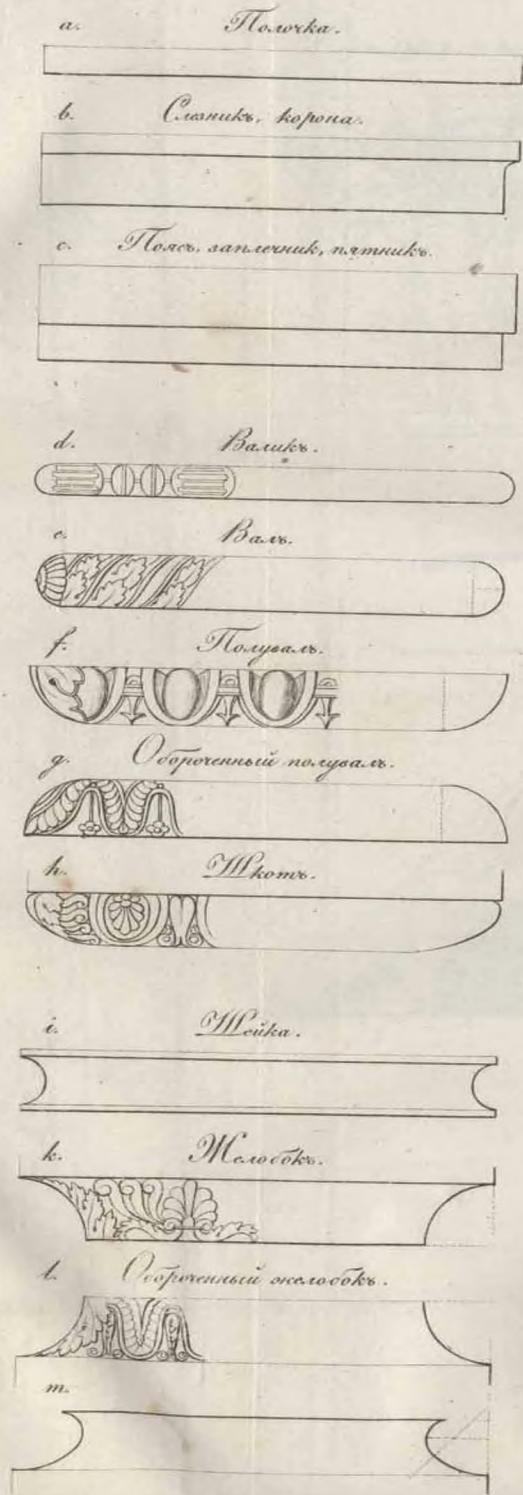 a. Полочка.
b. Слзникъ, корона.
c. Поясъ, заплечник, пятникъ.
d. Валикъ.
e. Валъ.
f. Полувалъ.
g. Обороченный полувалъ.
h. Шкотъ.
i. Шейка.
k. Желобокъ.
l. Обороченный желобокъ.
m.